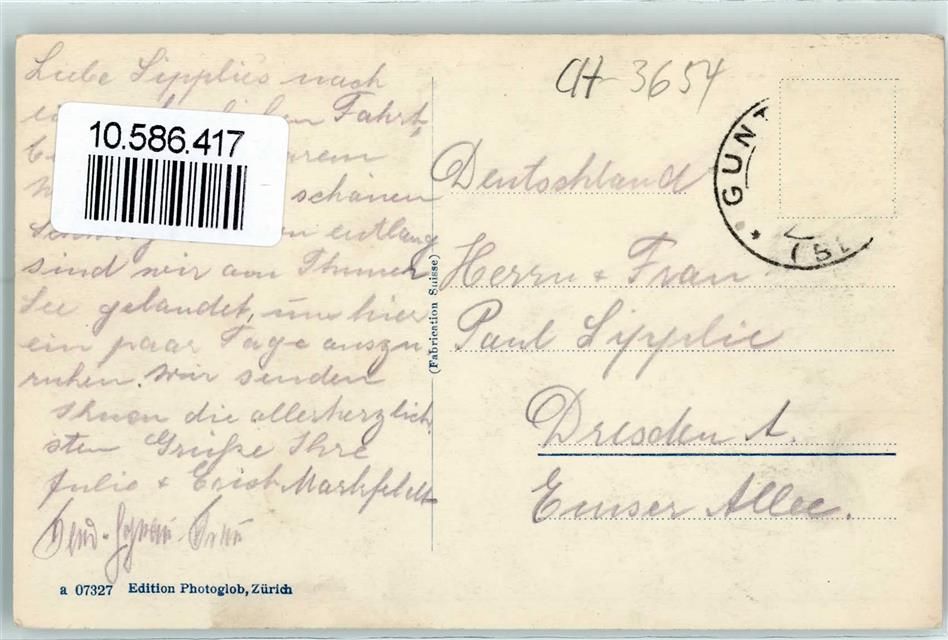 Liebe Sipplies nach
Fahrt,
schönen
entlang
sind wir am Thuner
See gelandet, um hier
ein paar Tage auszu
ruhen. Wir senden
Ihnen die allerherzlich
sten Grüße Ihre
Julie + Erich Markfeldt
10.586.417
CH-3654
GUNT
(BE
Deutschland
Herrn + Frau
Paul Sipplie
Dresden A.
Emser Allee.
(Fabrication Suisse)
a 07327 Edition Photoglob, Zürich